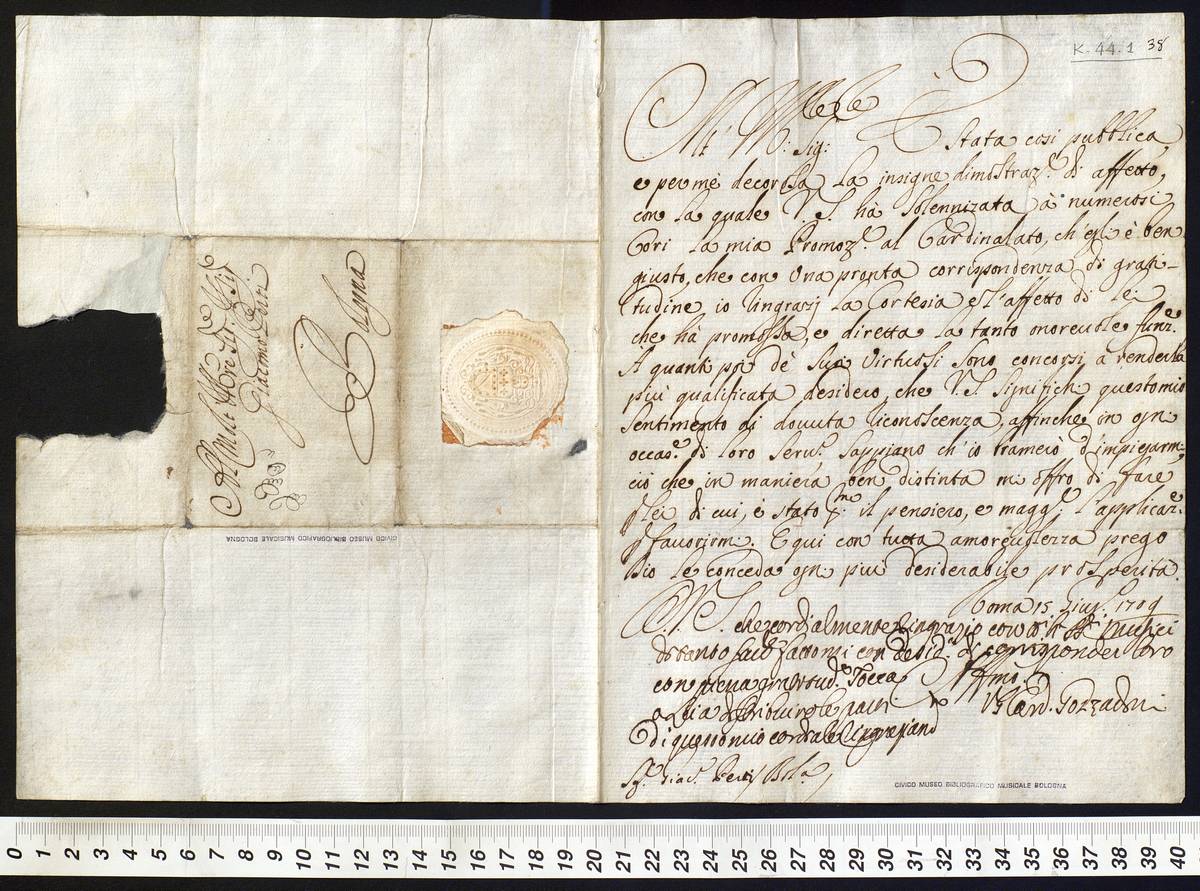 K. 44. 1 38
Sig:
È Stata così pubblica,
e per me decorosa la insigne dimostraz.e di affetto,
con la quale V. S. hà solennizata à numerosi
Cori la mia Promoz.e al Cardinalato, ch'egli è ben
giusto, che con una pronta corrispondenza di grati-
tudine io ringrazj la Cortesia e l'affetto di lei
che hà promossa, e diretta la tanto onorevole funz.e
A quanti poi de' Suoi Virtuosi sono concorsi à renderla
più qualificata desidero, che V. S. significhi questo mio
sentimento di dovuta riconoscenza, affinche in ogni
occas.e di loro serv.o sappiano ch'io bramerò d'impiegarmi
ciò che in maniera ben distinta mi offro di fare
p lei di cui, è stato il pensiero, e magg.e l'applicaz.e
p favorirmi. E qui con tutta amorevolezza prego
Dio le conceda ogni più desiderabile prosperità.
Roma 15 Giug.o 1709
V. S. che cordialmente ringrazio con tutti Musici
di tanto con di corrisponder loro
con piena Tocca
a Lei
di questo mio cordiale ringraziam.to
Aff.mo
Il Card. Gozzadini
S.r Giac.o Perti Bol.a
CIVICO MUSEO BIBLIOGRAFICO MUSICALE BOLOGNA
Al Molt' Ill.re Sig.r
Giacomo Perti
Bologna
CIVICO MUSEO BIBLIOGRAFICO MUSICALE BOLOGNA
0 1 2 3 4 5 6 7 8 9 10 11 12 13 14 15 16 17 18 19 20 21 22 23 24 25 26 27 28 29 30 31 32 33 34 35 36 37 38 39 40